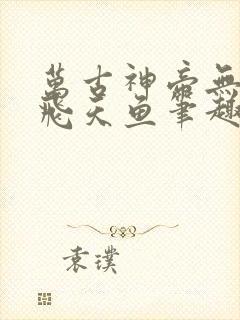 萬古神帝無
飛天魚筆趣
袁璞